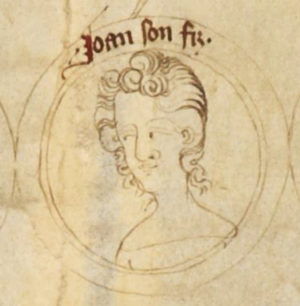 ·Joan son fiz·